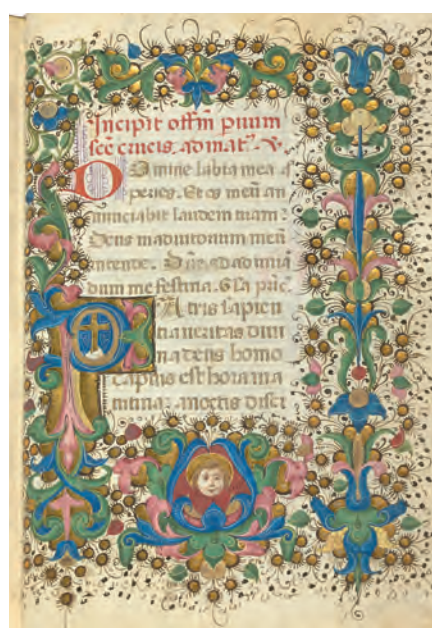 Incipit offm pauum
sc̄e crucis. ad mat². V.
Domine labia mea a
peries. Et os meū an
nunciabit laudem tuam:
Deus in adiutorium meū
intende. Dn̄e ad adiuuā
dum me festina. Gl̄a p̄rı̄.
Patris sapien
tia ueritas diui
na deus homo
captus est hora ma
tutina: a motis disci